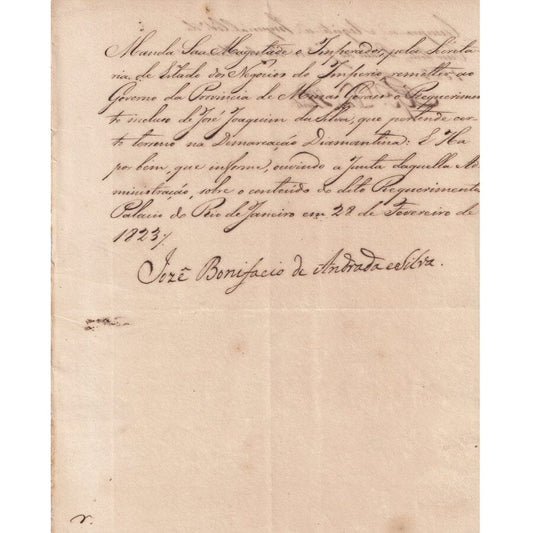 Manda Sua Magestade o Imperador, pela Secreta-
ria de Estado dos Negocios do Imperio, remetter ao
Governo da Provincia de Minas Geraes o Requerimen-
to incluso de José Joaquim da Silva, que pertende cer-
to terreno na Demarcação Diamantina: E Ha
por bem, que informe, ouvindo a Junta daquella Ad-
ministração, sobre o contheudo do dito Requerimento.
Palacio do Rio de Janeiro em 28 de Fevereiro de
1823/.
Jozé Bonifacio de Andrada e Silva.